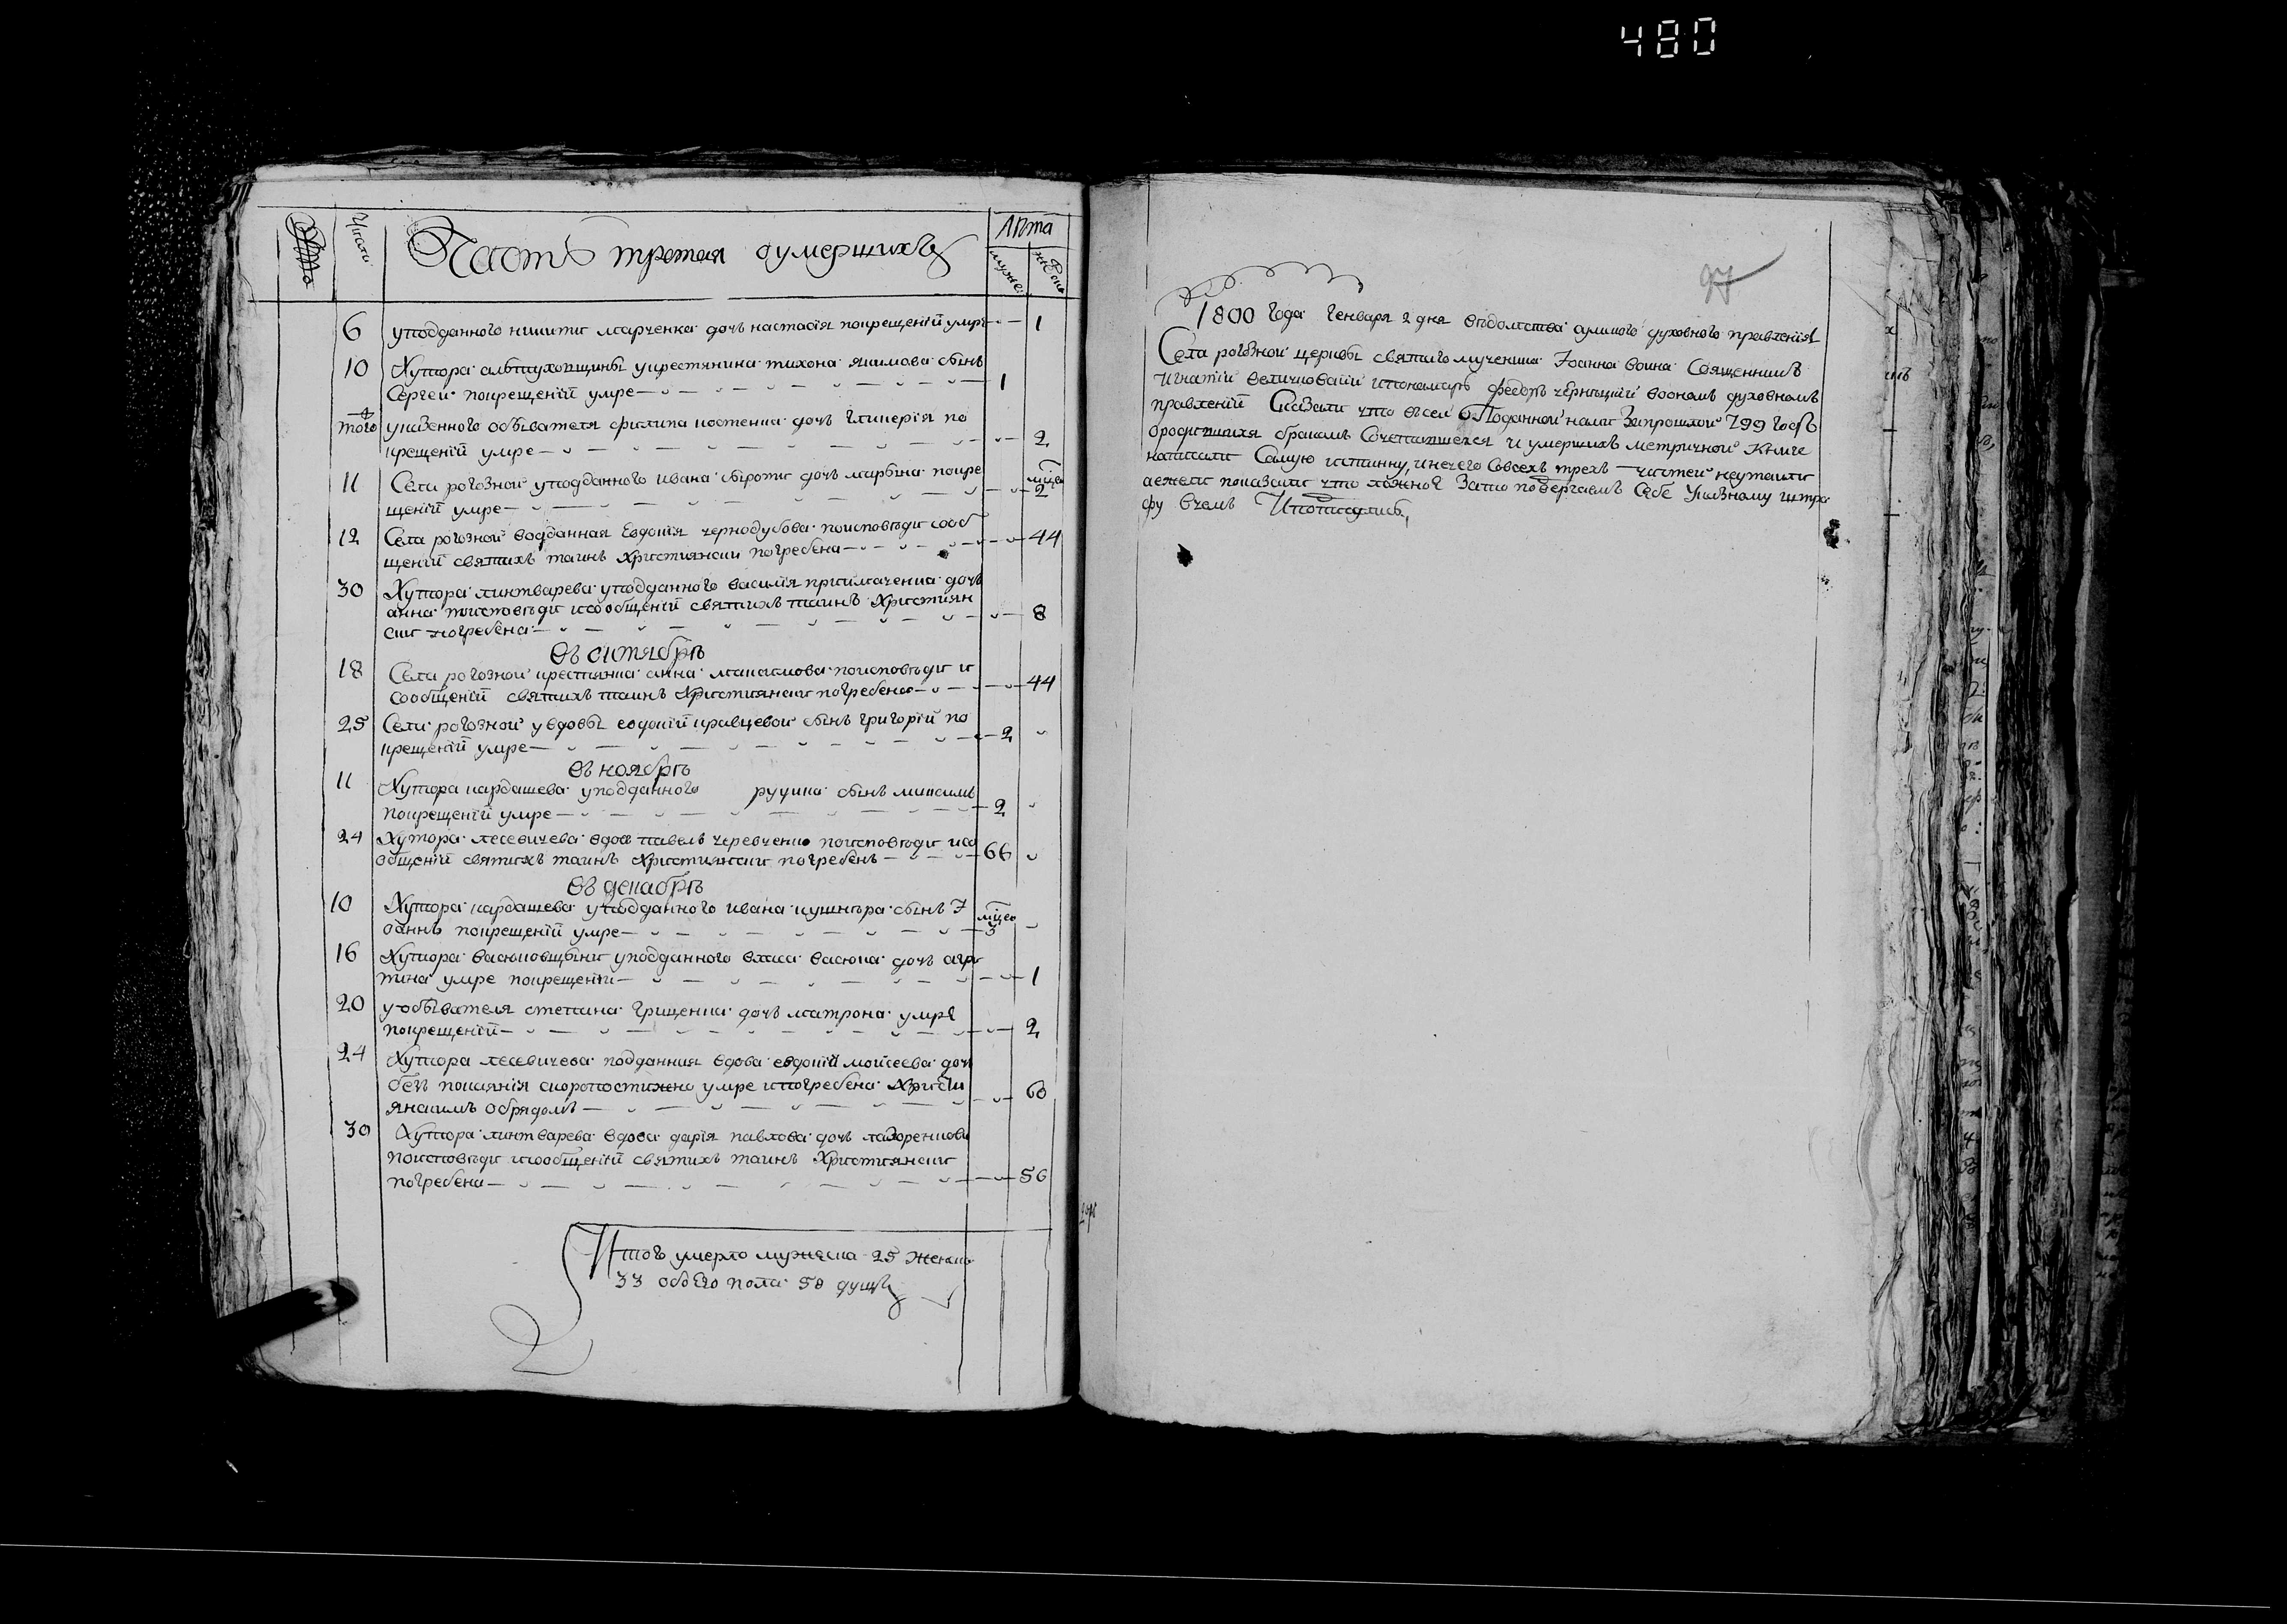 480
Число
Часть третая оумерших
Лѣта
мужес:
женс
6 уподданного никити марченка дочь настасія покрещеніи умре 1
10 Хутора алътуховщины укрестянина тихона якимова сынъ
Сергей покрещеніи умре 1
того указенного обывателя филипа костенка дочь гликерія по
крещеніи умре 2
11 Села рогозной уподданного ивана сыроти дочь марѳина покре мсце
щеніи умре 2
12 Села рогозной подданная Евдокія чернодубова поисповѣди сооб
щеніи святихъ таинъ християнски погребена 44
30 Хутора линтварева уподданного василія примаченка дочь
анна поисповѣди исообщеніи святихъ таинъ Християн
ски погребена 8
въ октябрѣ
18 Села рогозной крестянка анна максимова поисповѣди и
сообщеніи святихъ таинъ Християнски погребена 44
25 Села рогозной увдовы евдокіи кравцевой сынъ григорій по
крещеніи умре 2
въ ноябрѣ
11 Хутора кардашева уподданного руцина сынъ максимъ
покрещеніи умре 2
24 Хутора лесевичева вдовъ павелъ черевченко поисповѣди исо
общеніи святихъ таинъ Християнски погребенъ 66
въ декабрѣ
10 Хутора кардашева уподданного ивана кушнѣра сынъ І мсцей
оаннъ покрещеніи умре 3
16 Хутора васюковщыни уподданного власа васюка дочь агри
пина умре покрещеніи 1
20 у обывателя степана грищенка дочь матрона умре
покрещеніи 2
24 Хутора лесевичева подданная вдова евдокіи мойсеева дочь
безъ покаянія скоропостижно умре ипогребена Христи
янскимъ обрядомъ 60
30 Хутора линтварева вдова дарія павлова дочь лазоренкова
поисповѣди исообщеніи святихъ таинъ Християнски
погребена 56
Итогъ умерло мужеска 25 женска
33 обоего пола 58 душъ
97
1800 года Генваря 2 дня вѣдомства сумского духовного правленія
Села рогозной церквы святаго мученика Іоанна воина Священникъ
Игнатій величковскій ипономарь федоръ черняцкій воономъ духовномъ
правленій Сказали что всей Поданной нами Запрошлой 799 годъ
ородившихся бракомъ Сочетавшехся и умершихъ метричной Книге
написали Самую истинну, инечего вовсехъ трехъ частей неутаили
аежели показали что ложное Зато подвергаемъ Себе Указному штра
фу вчемъ Иподписались